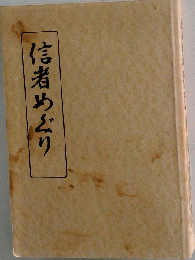 信者めぐり